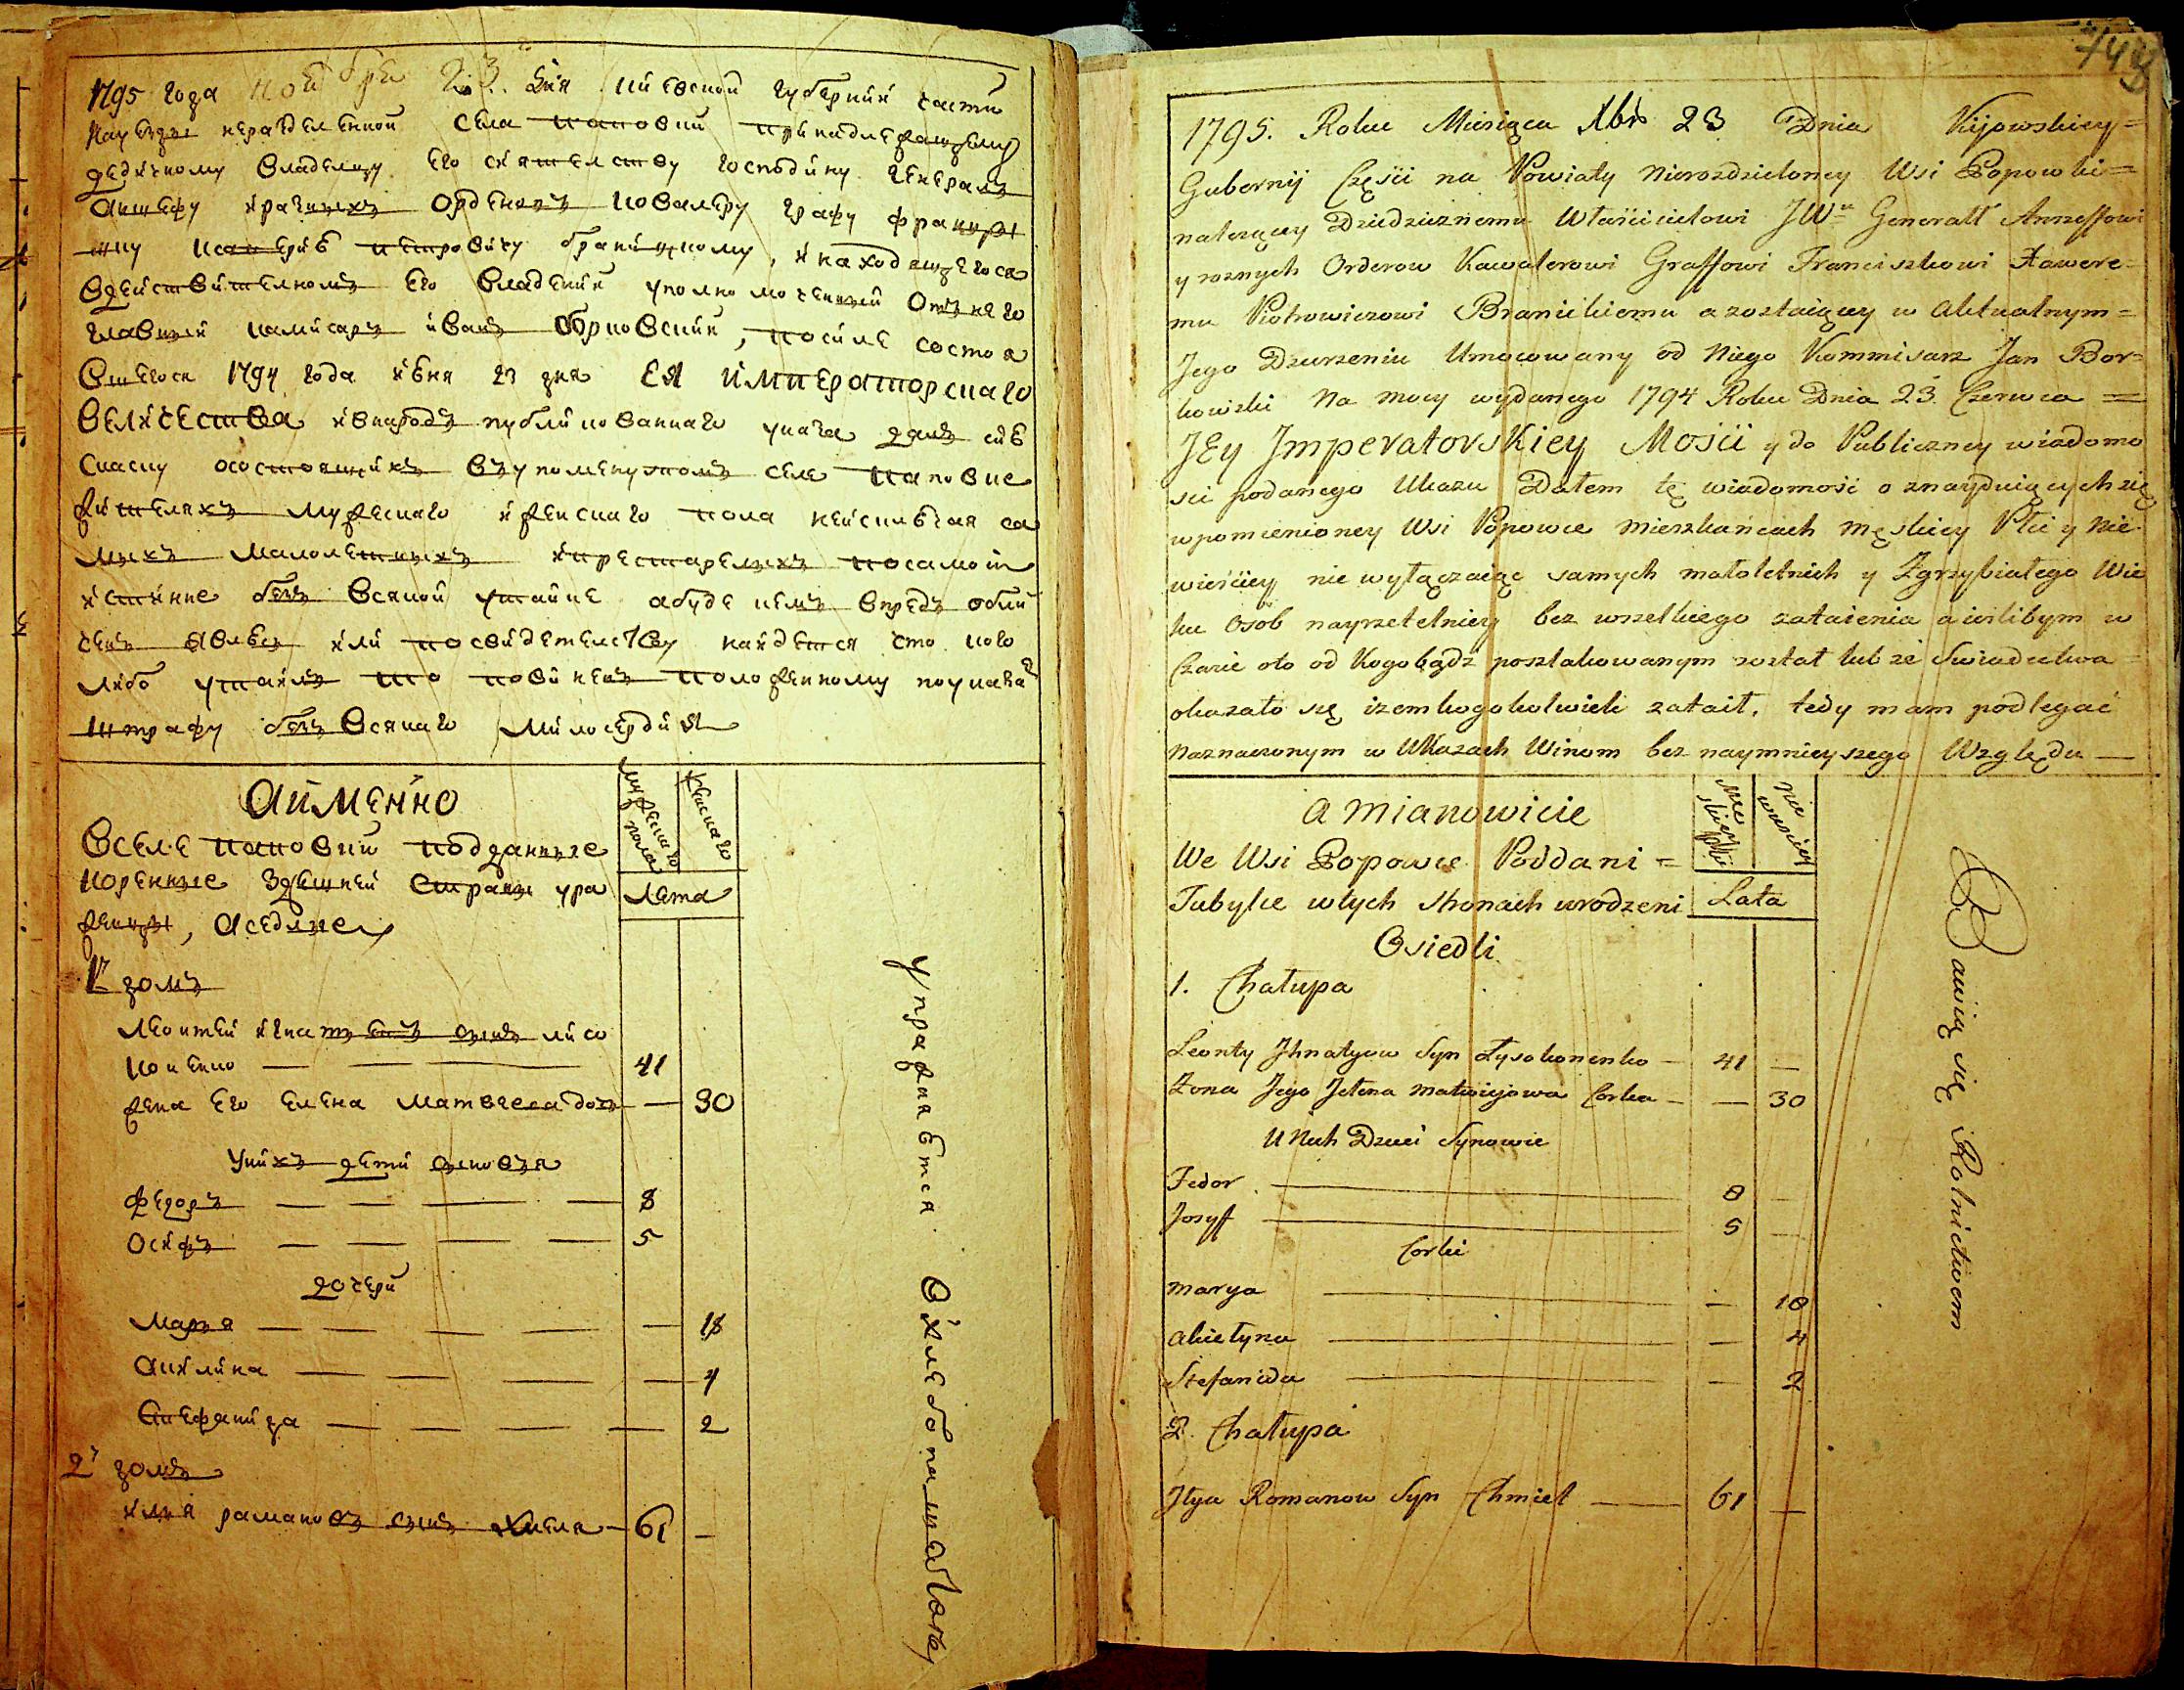 1795 года ноября 23. дня Киевской губернии части
на уезды нераздѣленной села Паповки принадлежащему
дедичному владелцу его сиятелству господину генералъ
аншефу и разныхъ орденовъ ковалеру графу францы
шку ксаверію петровичу браницкому, и находящегося
вдействителномъ его владении уполномоченный отъ него
главный камисаръ иванъ борковский, посиле состоя
вшегося 1794 года июня 23 дня ЕЯ ИМПЕРАТОРСКАГО
ВЕЛИЧЕСТВА ивнародъ публикованнаго указа далъ сию
скаску осостоящихъ въупомянутомъ селе Паповке
жителяхъ мужескаго иженскаго пола неисключая са
мыхъ малолетныхъ ипрестарелыхъ посамой
истинне безъ всякой утайке абуде кемъ впредь обли
ченъ явлюсь или посвидетелству найдется что кого
либо утаилъ то повиненъ положенному поуказа
штрафу безъ всякаго милосердия
Аименно
Вселе паповки подданные
коренные здешней страны уро
женцы, аседлые
мужеска пола
женскаго
Лета
1й домъ
Леонтей игнатьевъ сынъ лисо
коненко 41
жена его елена матвеева дочь 30
уних дети сыновья
федоръ 8
Осифъ 5
дочери
Марья 18
Акилина 4
Стефанида 2
2й домъ
илья рамановъ сынъ хмель 61
упражняются Охлебопашаство
1795. Roku Miesiąca Xbr 23 Dnia Kijowskiey=
Gubernij Częsci na Powiaty nierozdzieloney Wsi Popowki=
należącey Dziedzicznemu Właścicielowi JWu Generałł Anszeffowi
y roznych Orderow Kawalerowi Graffowi Franciszkowi Xawere=
mu Piotrowiczowi Branickiemu a zostaiącey w Aktualnym=
Jego Dzierzeniu Umocowany od Niego Kommisarz Jan Bor=
kowski Na mocy wydanego 1794 Roku Dnia 23 Czerwca =
JEy Jmperatorskiey Mości y do Publiczney wiadomo
sci podanego Ukazu Dałem tę wiadomość o znayduiących się
wpomienioney Wsi Popowce mieszkańcach męskiey Płci y Nie
wieściey nie wyłączaiąc samych małoletnich y Zgrzybiałego Wie
ku Osób nayrzetelniey bez wszelkiego zataienia a ieślibym w
Czasie oto od Kogobądź poszlakowanym został lub ze Swiadectwa=
okazało się iżem kogokolwiek zataił, tedy mam podlegać
Naznaczonym w Ukazach Winom bez naymnieyszego Względu —
A Mianowicie
męskiey Płci
nie wiesciey
We Wsi Popowce Poddani =
Tubylce wtych stronach urodzeni Lata
Osiedli
1. Chałupa
Leonty Jhnatyow Syn Łysokonenko — 41 —
Żona Jego Jelena Matwiejowa Corka — — 30
U Nich Dzieci Synowie
Fedor 8 —
Josyff 5 —
Corki
Marya — 18
Akiełyna — 4
Stefanida — 2
2. Chałupa
Jlya Romanow Syn Chmiel — 61 —
Bawią się Rolnictwem